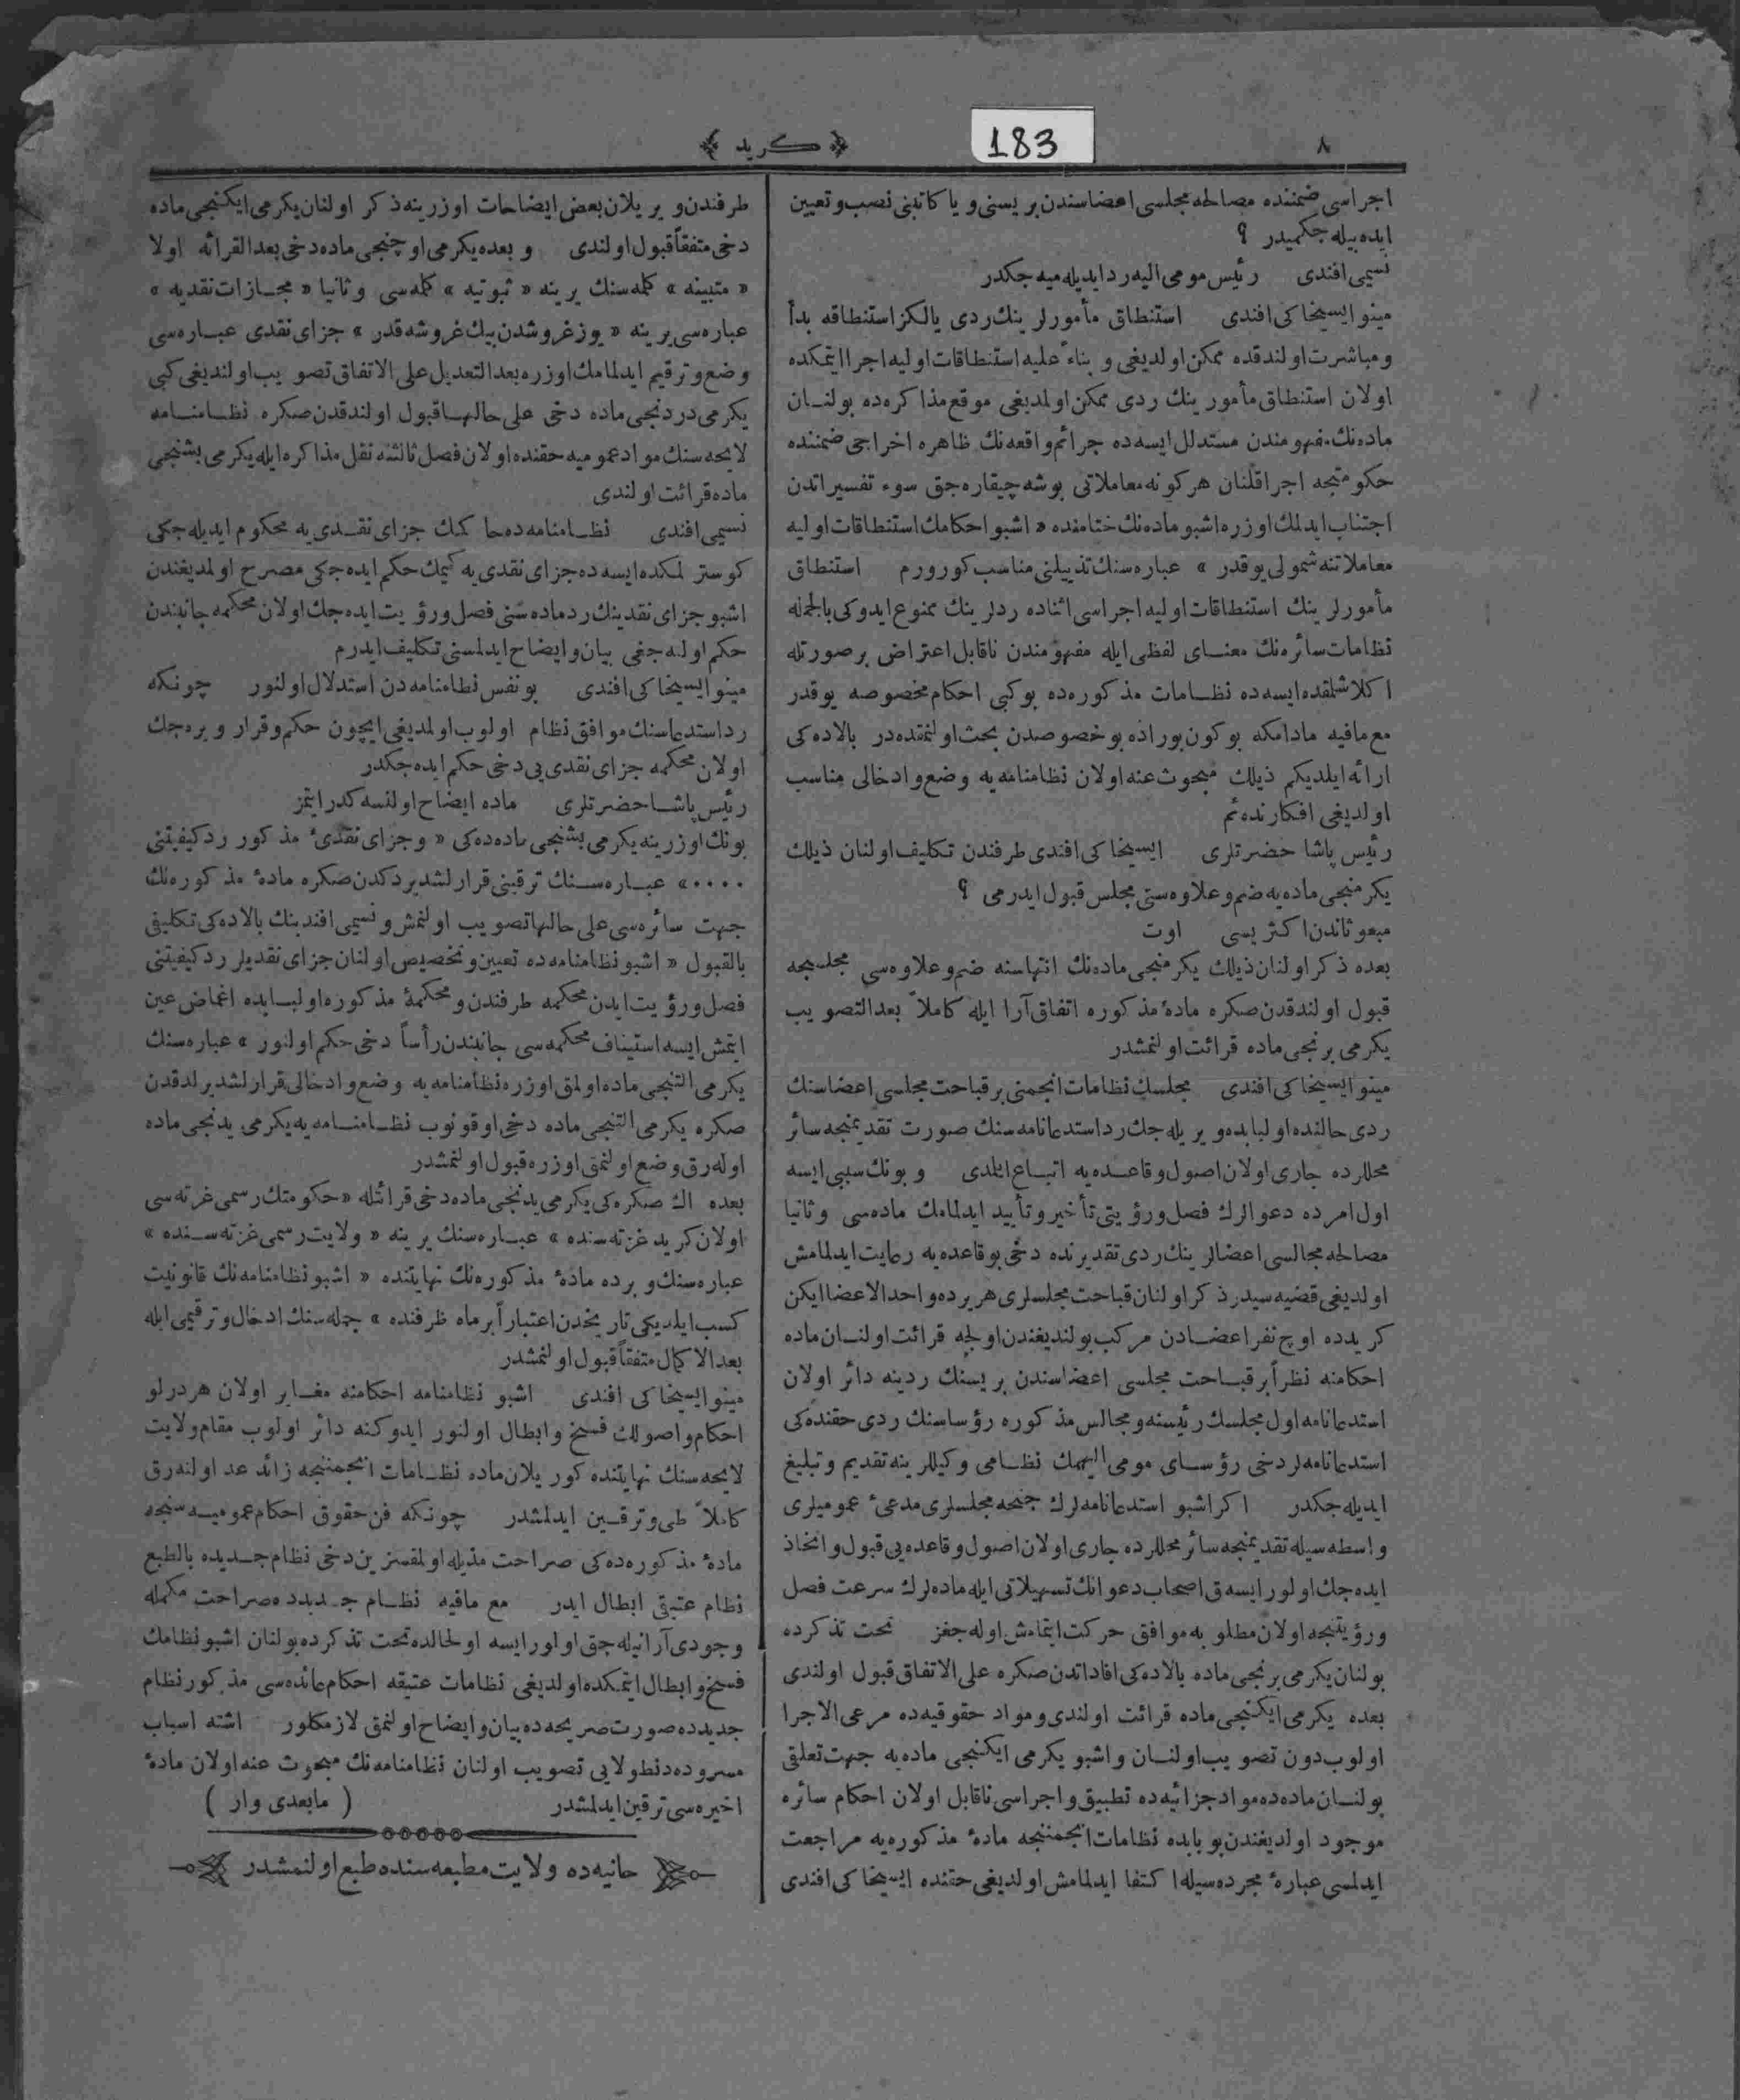 ٨
183
﴿ كريد ﴾
اجراسی ضمننده مصالحه مجلسی اعضاسندن بریسنی و یا كاتبنی نصب و تعیین
ایده بیله جكمیدر ؟
نسیمی افندی رئیس مومی الیه رد ایدیله میه جكدر
مینو ایسیخاكی افندی استنطاق مأمورلرینك ردی یالكز استنطاقه بدأ
و مباشرت اولندقده ممكن اولدیغی و بناءً علیه استنطاقات اولیه اجرا ایتمكده
اولان استنطاق مأمورینك ردی ممكن اولمدیغی موقع مذاكره ده بولنـان
ماده نك مفهومندن مستدلل ایسه ده جرائم واقعه نك ظاهره اخراجی ضمننده
حكومتجه اجرا قلنان هر كونه معاملاتی بوشه چیقاره جق سوء تفسیراتدن
اجتناب ایدلمك اوزره اشبو ماده نك ختامنده « اشبو احكامك استنطاقات اولیه
معاملاتنه شمولی یوقدر » عباره سنك تذییلنی مناسب كورورم استنطاق
مأمورلرینك استنطاقات اولیه اجراسی اثناده ردلرینك ممنوع ایدوكی بالجمله
نظامات سائره نك معنـای لفظی ایله مفهومندن ناقابل اعتراض بر صورتله
اكلاشلمقده ایسه ده نظـامات مذكوره ده بو كبی احكام مخصوصه یوقدر
مع مافیه مادامكه بو كون بوراده بو خصوصدن بحث اولنمقده در بالاده كی
ارائه ایلدیكم ذیلك مبحوث عنه اولان نظامنامه یه وضع و ادخالی مناسب
اولدیغی افكارنده یم
رئیس پاشا حضرتلری ایسیخاكی افندی طرفندن تكلیف اولنان ذیلك
یكرمنجی ماده یه ضم و علاوه سنی مجلس قبول ایدرمی ؟
مبعوثاندن اكثریسی اوت
بعده ذكر اولنان ذیلك یكرمنجی ماده نك انتهاسنه ضم و علاوه سی مجلسجه
قبول اولندقدن صكره مادهٔ مذكوره اتفاق آرا ایله كاملاً بعد التصویب
یكرمی برنجی ماده قرائت اولنمشدر
مینو ایسیخاكی افندی مجلسك نظامات انجمنی بر قباحت مجلسی اعضاسنك
ردی حالنده اولبابده ویریله جك رد استدعانامه سنك صورت تقدیمنجه سائر
محللرده جاری اولان اصول و قاعـده یه اتبـاع ایلدی و بونك سببی ایسه
اول امرده دعوالرك فصل و رؤیتی تأخیر و تأیید ایدلمامك ماده سی و ثانیا
مصالحه مجالسی اعضالرینك ردی تقدیرنده دخی بو قاعده یه رعایت ایدلمامش
اولدیغی قضیه سیدر ذكر اولنان قباحت مجلسلری هر یرده واحد الاعضا ایكن
كریدده اوچ نفر اعضـادن مركب بولندیغندن اولجه قرائت اولنـان ماده
احكامنه نظراً بر قبـاحت مجلسی اعضاسندن بریسنك ردینه دائر اولان
استدعانامه اول مجلسك رئیسنه و مجالس مذكوره رؤساسنك ردی حقنده كی
استدعانامه لر دخی رؤسـای مومی الیهمك نظـامی وكیللرینه تقدیم و تبلیغ
ایدیله جكدر اكر اشبو استدعانامه لرك جنحه مجلسلری مدعیٔ عمومیلری
واسطه سیله تقدیمنجه سائر محللرده جاری اولان اصول و قاعده یی قبول و اتخاذ
ایده جك اولور ایسه ق اصحاب دعوانك تسهیلاتی ایله ماده لرك سرعت فصل
و رؤیتنجه اولان مطلوبه موافق حركت ایتمامش اوله جغز تحت تذكرده
بولنان یكرمی برنجی ماده بالاده كی افاداتدن صكره علی الاتفاق قبول اولندی
بعده یكرمی ایكنجی ماده قرائت اولندی و مواد حقوقیه ده مرعی الاجرا
اولوب دون تصویب اولنـان و اشبو یكرمی ایكنجی ماده یه جهت تعلقی
بولنـان ماده ده مواد جزائیه ده تطبیق و اجراسی ناقابل اولان احكام سائره
موجود اولدیغندن بو بابده نظامات انجمننجه مادهٔ مذكوره یه مراجعت
ایدلمسی عبارهٔ مجرده سیله اكتفا ایدلمامش اولدیغی حقنده ایسیخاكی افندی
طرفندن ویریلان بعض ایضاحات اوزرینه ذكر اولنان یكرمی ایكنجی ماده
دخی متفقاً قبول اولندی و بعده یكرمی اوچنجی ماده دخی بعد القرائه اولا
« متبینه » كلمه سنك یرینه « ثبوتیه » كلمه سی و ثانیا « مجـازات نقدیه »
عباره سی یرینه « یوز غروشدن بیك غروشه قدر » جزای نقدی عبـاره سی
وضع و ترقیم ایدلمامك اوزره بعد التعدیل علی الاتفاق تصویب اولندیغی كبی
یكرمی دردنجی ماده دخی علی حالهـا قبول اولندقدن صكره نظـامنـامه
لایحه سنك مواد عمومیه حقنده اولان فصل ثالثنه نقل مذاكره ایله یكرمی بشنجی
ماده قرائت اولندی
نسیمی افندی نظـامنامه ده حاكمك جزای نقـدی یه محكوم ایدیله جكی
كوسترلمكده ایسه ده جزای نقدی یه كیمك حكم ایده جكی مصرح اولمدیغندن
اشبو جزای نقدینك رد ماده سنی فصل و رؤیت ایده جك اولان محكمه جانبندن
حكم اوله جغی بیان و ایضاح ایدلمسنی تكلیف ایدرم
مینو ایسیخاكی افندی بو نفس نظامنامه دن استدلال اولنور چونكه
رد استدعاسنك موافق نظام اولوب اولمدیغی ایچون حكم و قرار ویره جك
اولان محكمه جزای نقدی یی دخی حكم ایده جكدر
رئیس پاشـا حضرتلری ماده ایضاح اولنسه كدر ایتمز
بونك اوزرینه یكرمی بشنجی ماده ده كی « و جزای نقدیٔ مذكور رد كیفیتنی
٠٠٠٠ » عبـاره سـنك ترقینی قرارلشدیردكدن صكره مادهٔ مذكوره نك
جهت سائره سی علی حالها تصویب اولنمش و نسیمی افندینك بالاده كی تكلیفی
بالقبول « اشبو نظامنامه ده تعیین و تخصیص اولنان جزای نقدیلر رد كیفیتنی
فصل و رؤیت ایدن محكمه طرفندن و محكمهٔ مذكوره اولبـابده اغماض عین
ایتمش ایسه استیناف محكمه سی جانبندن رأساً دخی حكم اولنور » عباره سنك
یكرمی التنجی ماده اولمق اوزره نظامنامه یه وضع و ادخالی قرارلشدیرلدقدن
صكره یكرمی التنجی ماده دخی اوقونوب نظـامنـامه یه یكرمی یدنجی ماده
اوله رق وضع اولنمق اوزره قبول اولنمشدر
بعده اك صكره كی یكرمی یدنجی ماده دخی قرائتله « حكومتك رسمی غزته سی
اولان كرید غزته سنده » عبـاره سنك یرینه « ولایت رسمی غزته سـنده »
عباره سنك و برده مادهٔ مذكوره نك نهایتنده « اشبو نظامنامه نك قانونیت
كسب ایلدیكی تاریخدن اعتباراً بر ماه ظرفنده » جمله سنك ادخال و ترقیمی ایله
بعد الاكمال متفقاً قبول اولنمشدر
مینو ایسیخاكی افندی اشبو نظامنامه احكامنه مغـایر اولان هر درلو
احكام و اصولك فسخ و ابطال اولنور ایدوكنه دائر اولوب مقام ولایت
لایحه سنك نهایتنده كوریلان ماده نظـامات انجمننجه زائد عد اولنه رق
كاملاً طی و ترقـین ایدلمشدر چونكه فن حقوق احكام عمومیـه سنجه
مادهٔ مذكوره ده كی صراحت مذیله اولمقسزین دخی نظام جـدیده بالطبع
نظام عتیقی ابطال ایدر مع مافیه نظـام جـدیدده صراحت مكمله
وجودی آرانیله جق اولور ایسه اولحالده تحت تذكرده بولنان اشبو نظامك
فسخ و ابطال ایتمكده اولدیغی نظامات عتیقه احكام عائده سی مذكور نظام
جدیدده صورت صریحه ده بیان و ایضاح اولنمق لازمكلور اشته اسباب
مسروده دنطولایی تصویب اولنان نظامنامه نك مبحوث عنه اولان مادهٔ
اخیره سی ترقین ایدلمشدر ( مابعدی وار )
حانیه ده ولایت مطبعه سنده طبع اولنمشدر